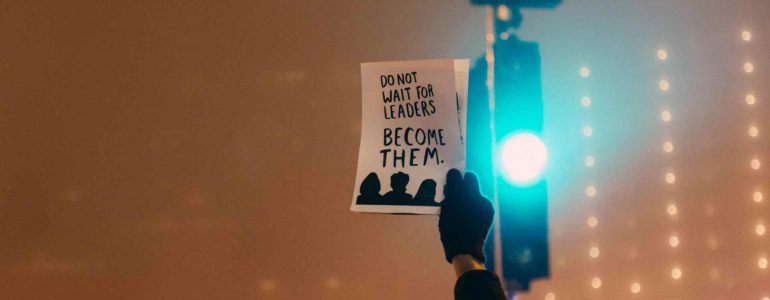 DO NOT
WAIT FOR
LEADERS
BECOME
THEM.